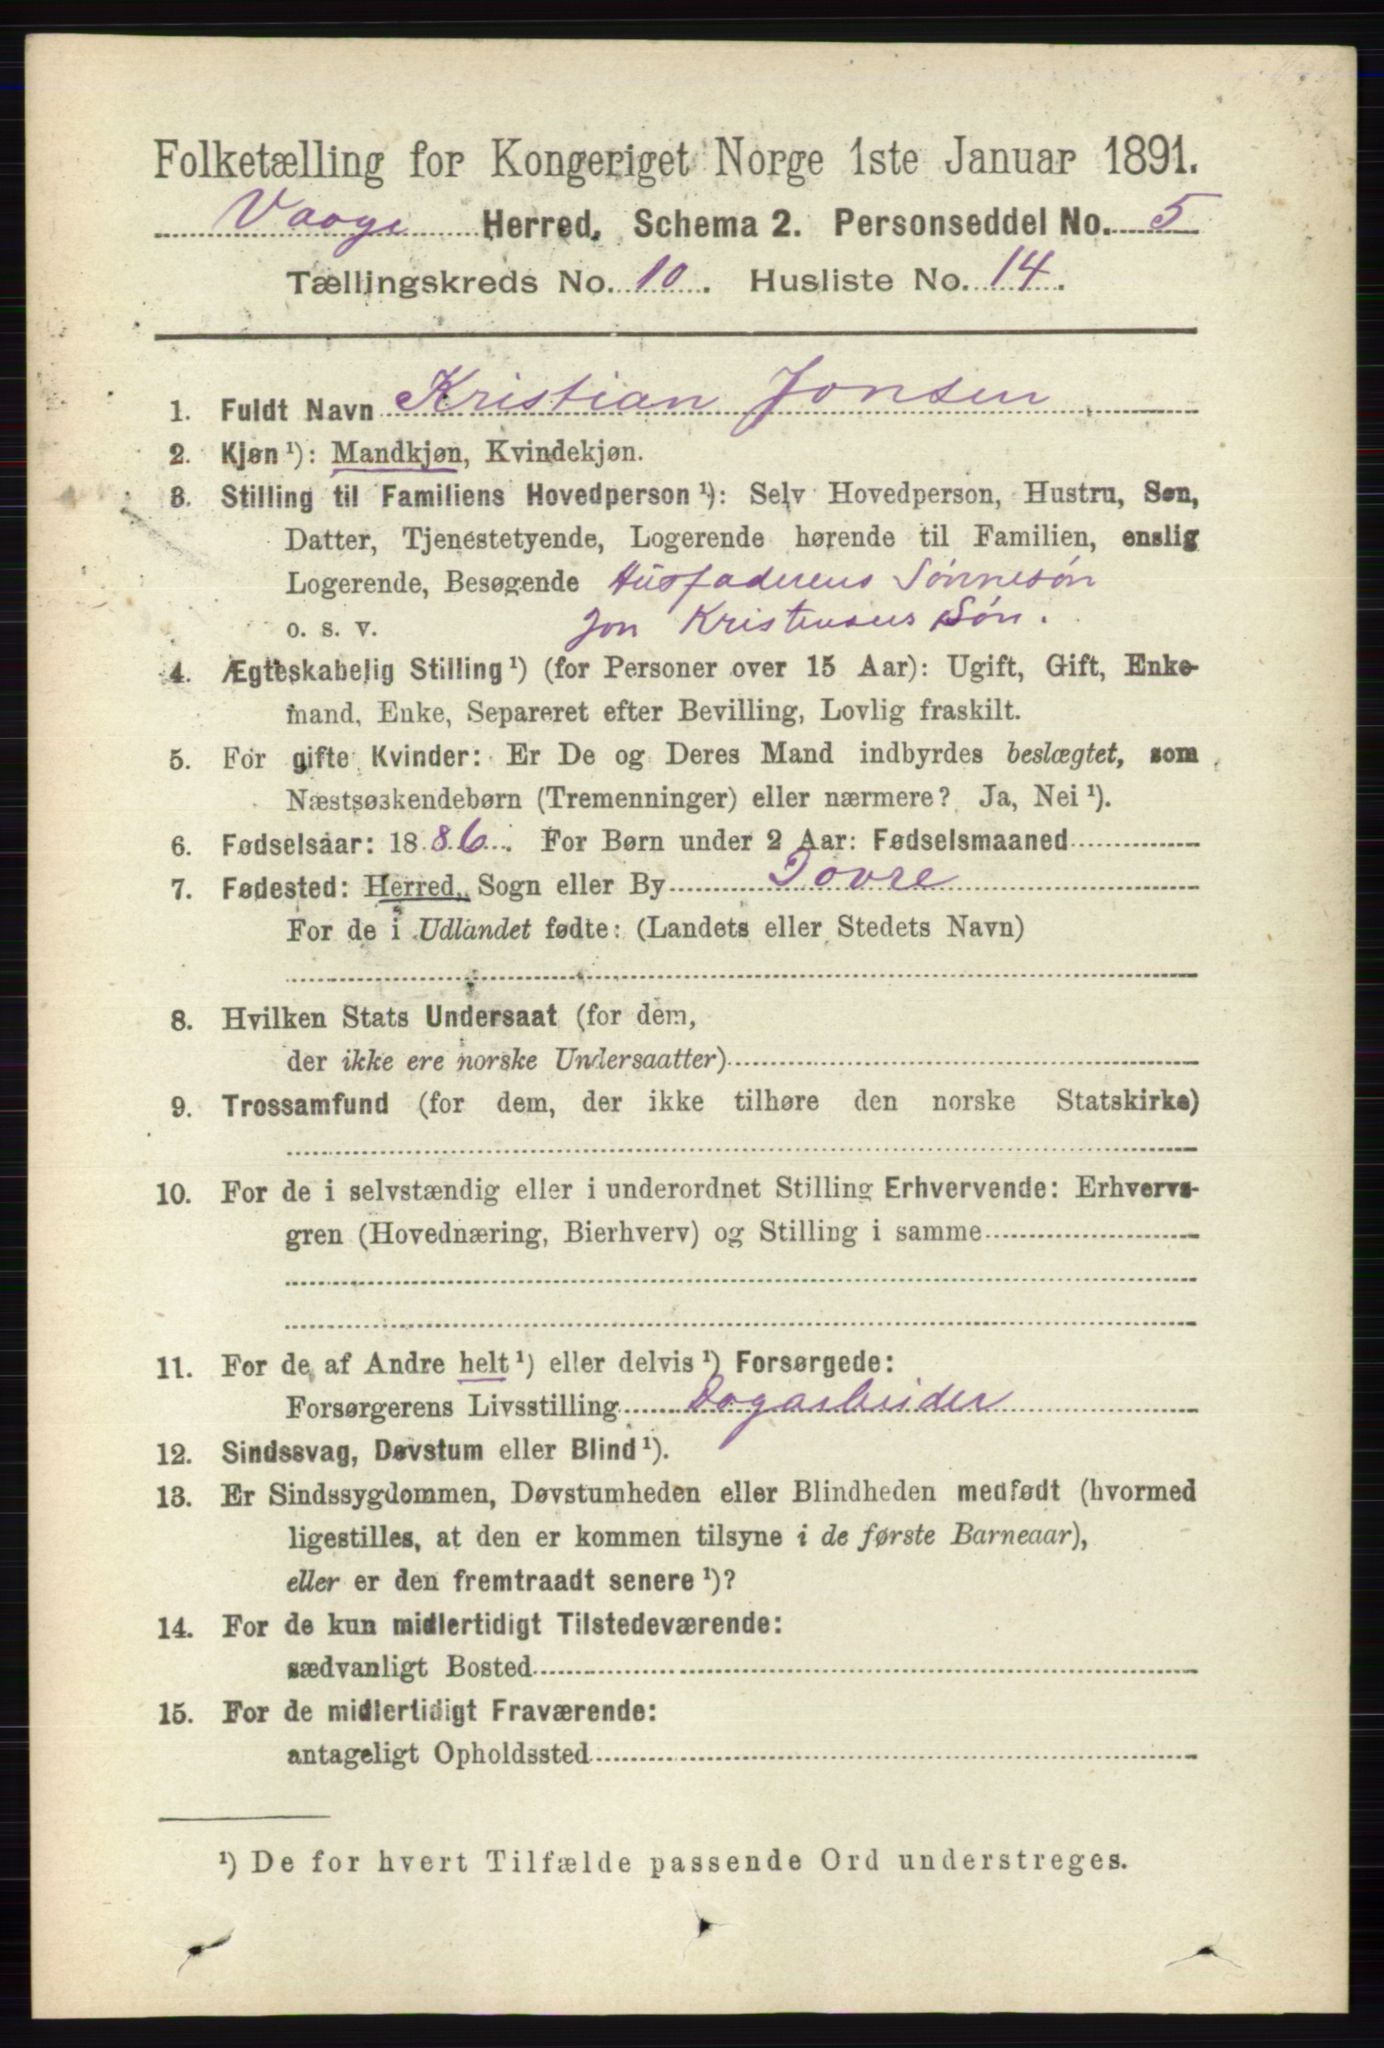 Folketælling for Kongeriget Norge 1ste Januar 1891.
Vaage Herred. Schema 2. Personseddel No. 5
Tællingskreds No. 10. Husliste No. 14.
1. Fuldt Navn Kristian Jonsen
2. Kjøn ¹): Mandkjøn, Kvindekjøn.
3. Stilling til Familiens Hovedperson ¹): Selv Hovedperson, Hustru, Søn,
Datter, Tjenestetyende, Logerende hørende til Familien, enslig
Logerende, Besøgende Husfaderens Sønnesøn
o. s. v. Jon Kristensens Søn.
4. Ægteskabelig Stilling ¹) (for Personer over 15 Aar): Ugift, Gift, Enke-
mand, Enke, Separeret efter Bevilling, Lovlig fraskilt.
5. For gifte Kvinder: Er De og Deres Mand indbyrdes beslægtet, som
Næstsøskendebørn (Tremenninger) eller nærmere? Ja, Nei ¹).
6. Fødselsaar: 1886. For Børn under 2 Aar: Fødselsmaaned
7. Fødested: Herred, Sogn eller By Dovre
For de i Udlandet fødte: (Landets eller Stedets Navn)
8. Hvilken Stats Undersaat (for dem,
der ikke ere norske Undersaatter)
9. Trossamfund (for dem, der ikke tilhøre den norske Statskirke)
10. For de i selvstændig eller i underordnet Stilling Erhvervende: Erhvervs-
gren (Hovednæring, Bierhverv) og Stilling i samme
11. For de af Andre helt ¹) eller delvis ¹) Forsørgede:
Forsørgerens Livsstilling Dagarbeider
12. Sindssvag, Døvstum eller Blind ¹).
13. Er Sindssygdommen, Døvstumheden eller Blindheden medfødt (hvormed
ligestilles, at den er kommen tilsyne i de første Barneaar),
eller er den fremtraadt senere ¹)?
14. For de kun midlertidigt Tilstedeværende:
sædvanligt Bosted
15. For de midlertidigt Fraværende:
antageligt Opholdssted
¹) De for hvert Tilfælde passende Ord understreges.